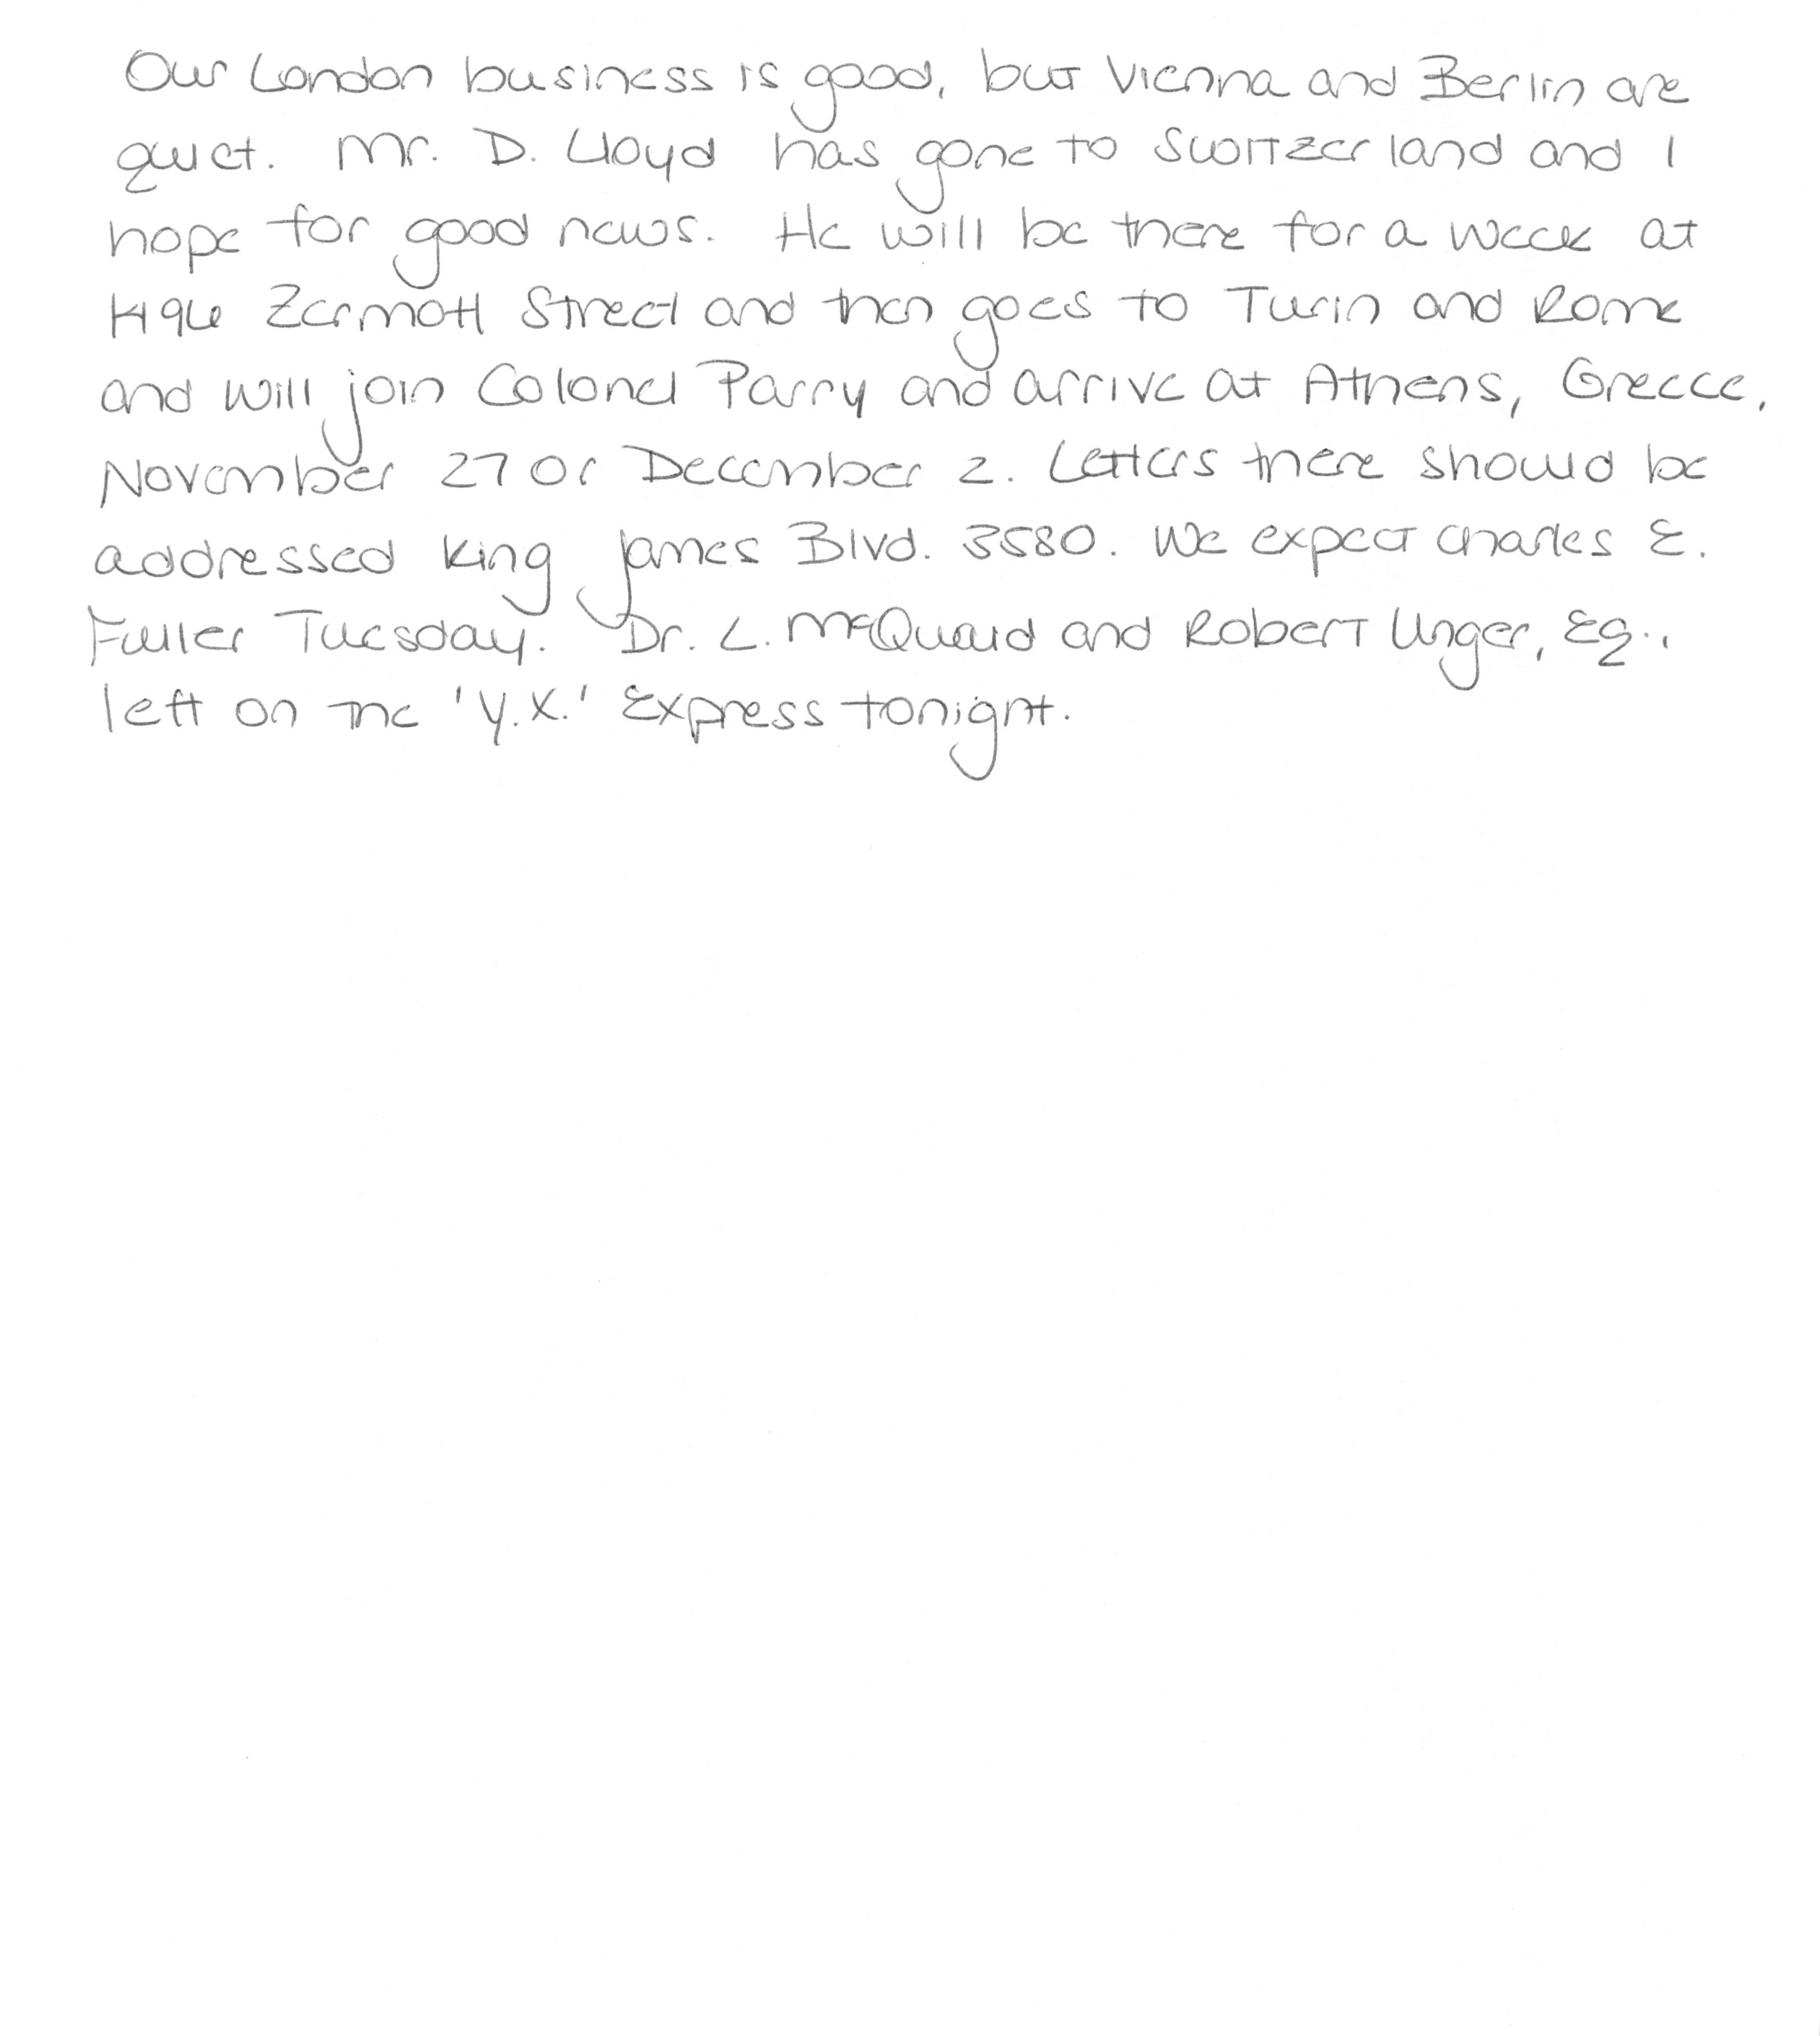 Our London business is good, but Vienna and Berlin are
quiet. Mr. D. Lloyd has gone to Switzerland and I
hope for good news. He will be there for a week at
1496 Zermott Street and then goes to Turin and Rome
and will join Colonel Parry and arrive at Athens, Greece,
November 27 or December 2. Letters there should be
addressed King James Blvd. 3580. We expect Charles E.
Fuller Tuesday. Dr. L. McQuaid and Robert Unger, Eq.,
left on the 'Y.X.' Express tonight.